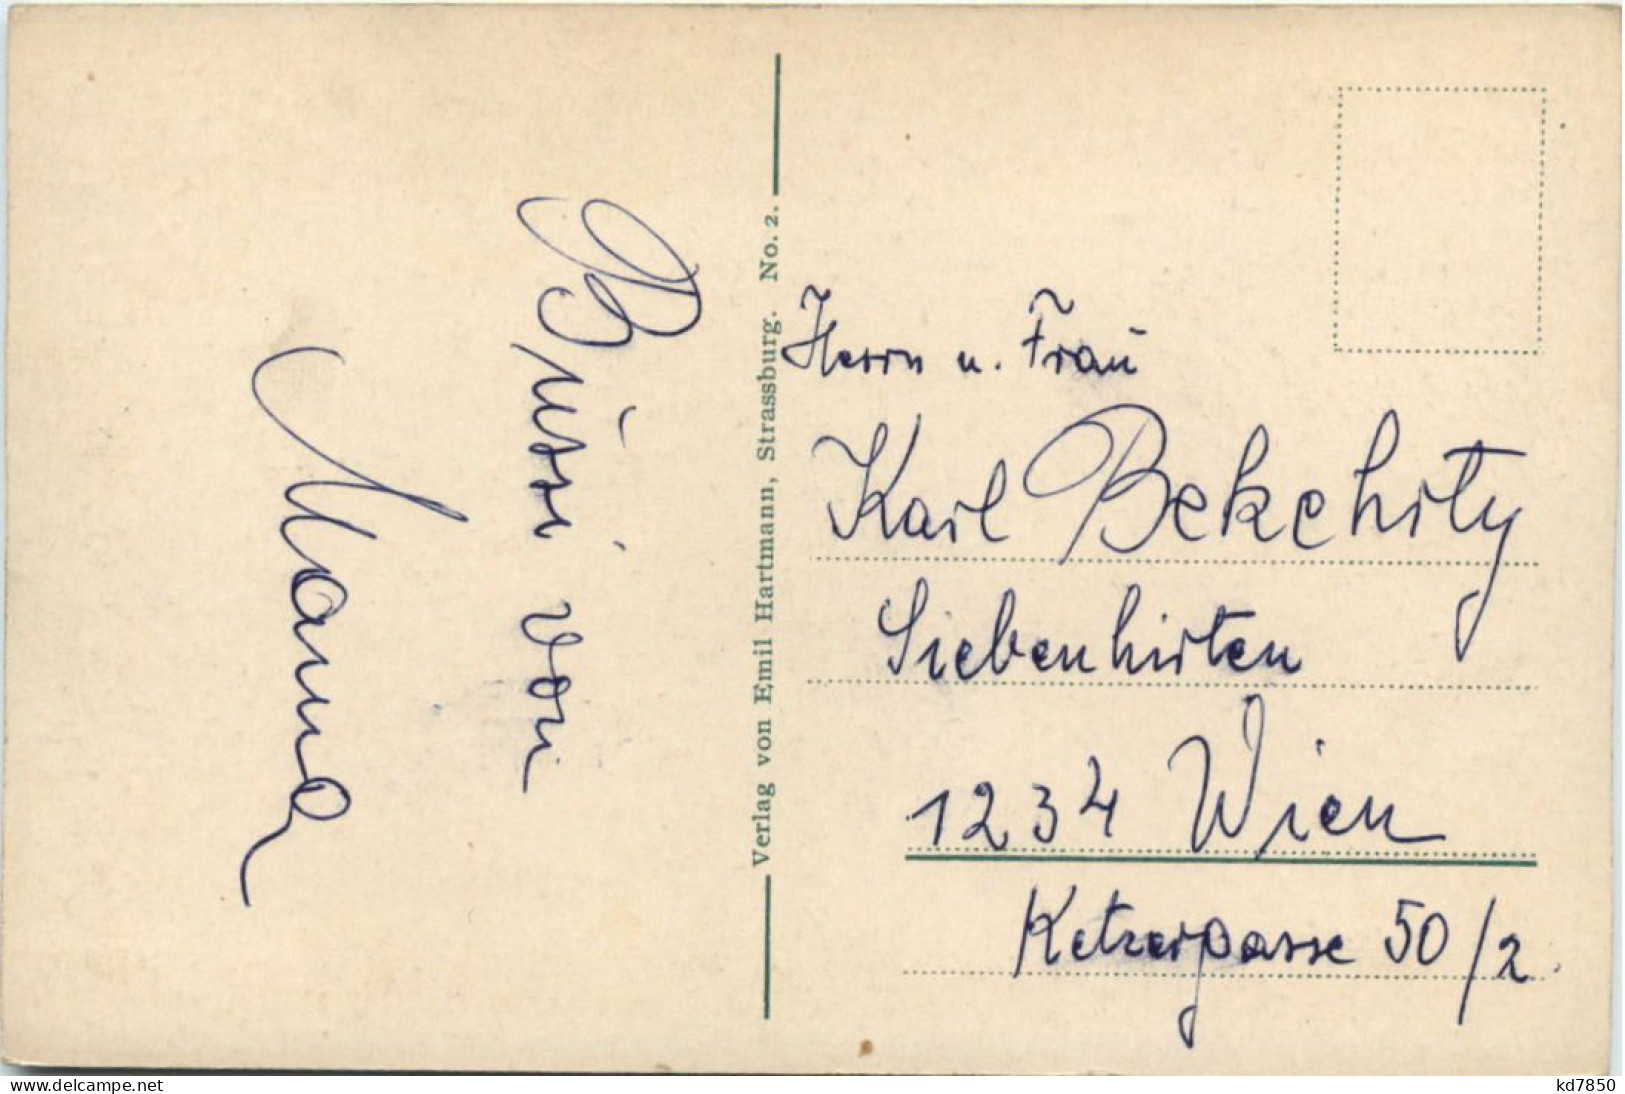 Büssi von
Mama
Verlag von Emil Hartmann, Strassburg. No. 2.
Herrn u. Frau
Karl Bekehrty
Siebenhirten
1234 Wien
Ketzergasse 50/2.
www.delcampe.net
kd7850